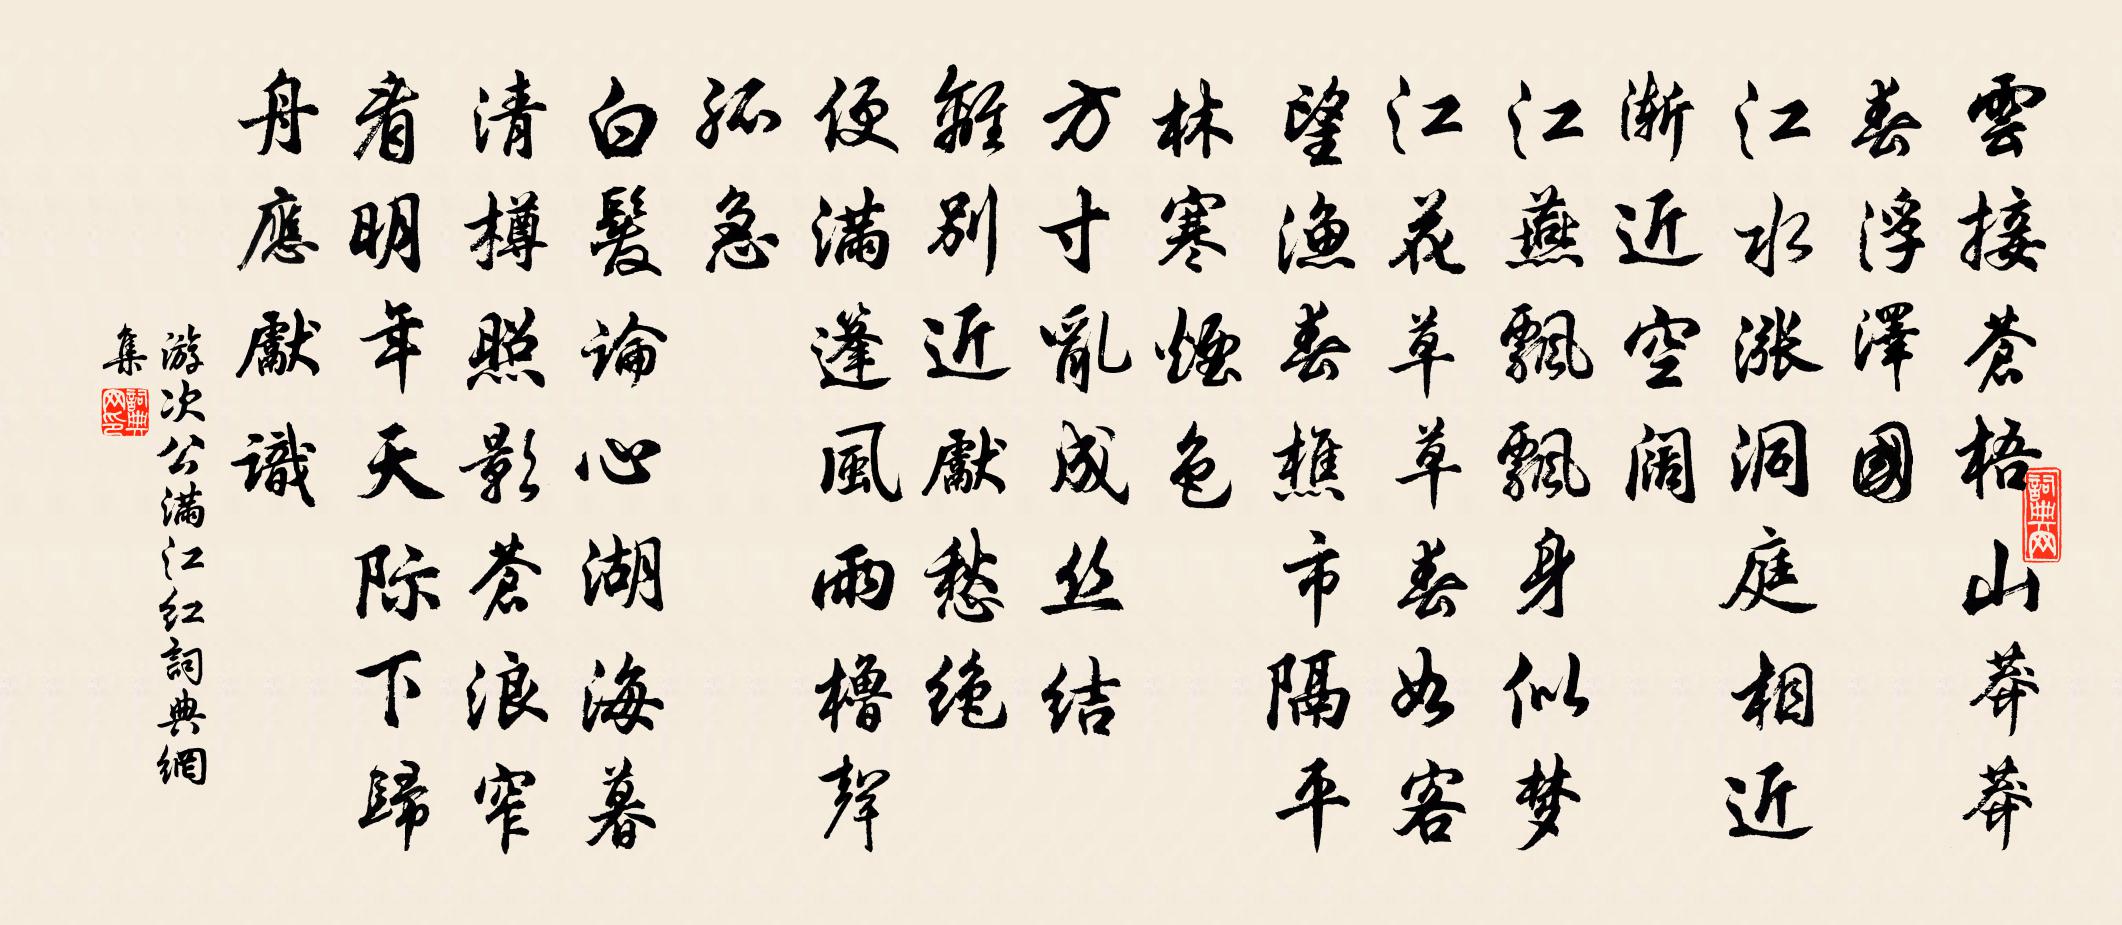 雲接蒼梧山莽莽
春浮澤國
江水漲洞庭相近
渐近空阔
江燕飄飄身似梦
江花草草春如客
望漁春樵市隔平
林寒煙色
方寸亂成丝结
離别近獻愁绝
便滿蓬風雨櫓聲
孤急
白髮論心湖海暮
清樽照影蒼浪窄
看明年天际下歸
舟應獻識
游次公滿江红詞典網
集
詞典网
詞典网印